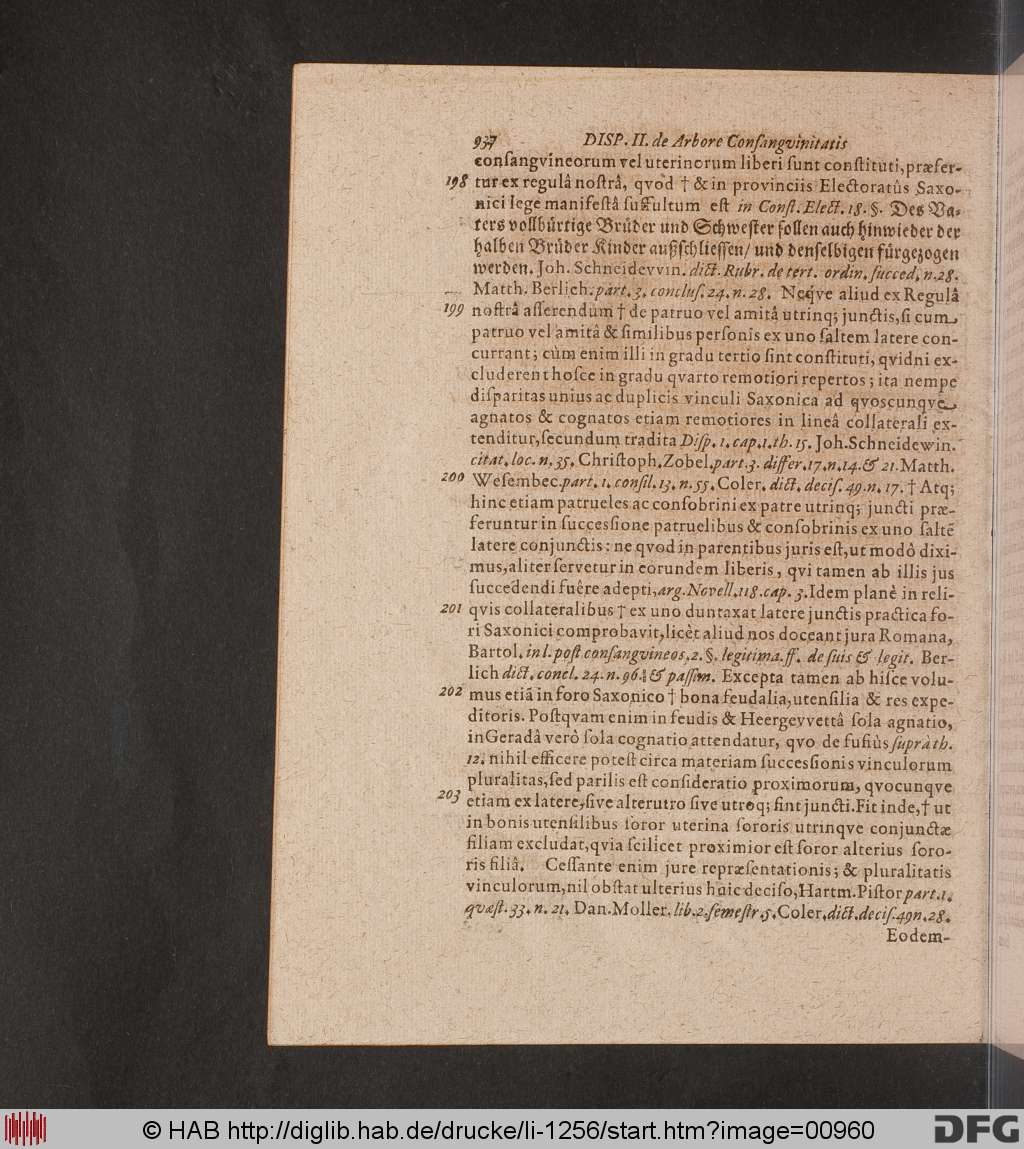 937 DISP. II. de Arbore Conſangvinitatis
conſangvineorum vel uterinorum liberi ſunt conſtituti, præfer-
198 tur ex regulâ noſtrâ, qvod † & in provinciis Electoratûs Saxo-
nici lege manifeſtâ ſuffultum eſt in Conſt. Elect. 18. §. Des Va-
ters vollbürtige Brüder und Schweſter ſollen auch hinwieder der
halben Brüder Kinder außſchlieſſen/ und denſelbigen fürgezogen
werden. Joh. Schneidevvin. dict. Rubr. de tert. ordin. ſucced. n. 28.
Matth. Berlich. part. 3. concluſ. 24. n. 28. Neqve aliud ex Regulâ
199 noſtrâ aſſerendum † de patruo vel amitâ utrinq; junctis, ſi cum
patruo vel amitâ & ſimilibus perſonis ex uno ſaltem latere con-
currant; cùm enim illi in gradu tertio ſint conſtituti, qvidni ex-
cluderent hoſce in gradu qvarto remotiori repertos; ita nempe
diſparitas unius ac duplicis vinculi Saxonica ad qvoscunqve
agnatos & cognatos etiam remotiores in lineâ collaterali ex-
tenditur, ſecundum tradita Diſp. 1. cap. 1. th. 15. Joh. Schneidewin.
citat. loc. n. 35. Chriſtoph. Zobel. part. 3. differ. 17. n. 14. & 21. Matth.
200 Weſembec. part. 1. conſil. 13. n. 55. Coler. dict. deciſ. 49. n. 17. † Atq;
hinc etiam patrueles ac conſobrini ex patre utrinq; juncti præ-
feruntur in ſucceſſione patruelibus & conſobrinis ex uno ſaltē
latere conjunctis: ne qvod in parentibus juris eſt, ut modò dixi-
mus, aliter ſervetur in eorundem liberis, qvi tamen ab illis jus
ſuccedendi fuêre adepti, arg. Novell. 118. cap. 3. Idem planè in reli-
201 qvis collateralibus † ex uno duntaxat latere junctis practica fo-
ri Saxonici comprobavit, licèt aliud nos doceant jura Romana,
Bartol. in l. poſt conſangvineos, 2. §. legitima. ff. de ſuis & legit. Ber-
lich dict. concl. 24. n. 96. & paſſim. Excepta tamen ab hiſce volu-
202 mus etiã in foro Saxonico † bona feudalia, utenſilia & res expe-
ditoris. Poſtqvam enim in feudis & Heergevvettâ ſola agnatio,
in Geradâ verò ſola cognatio attendatur, qvo de fuſiùs ſuprà th.
12. nihil efficere poteſt circa materiam ſucceſſionis vinculorum
pluralitas, ſed parilis eſt conſideratio proximorum, qvocunqve
203 etiam ex latere, ſive alterutro ſive utroq; ſint juncti. Fit inde, † ut
in bonis utenſilibus ſoror uterina ſororis utrinqve conjunctæ
filiam excludat, qvia ſcilicet proximior eſt ſoror alterius ſoro-
ris filiâ. Ceſſante enim jure repræſentationis; & pluralitatis
vinculorum, nil obſtat ulterius huic deciſo, Hartm. Piſtor part. 1.
qvæſt. 33. n. 21. Dan. Moller. lib. 2. ſemeſtr. 5. Coler. dict. deciſ. 49 n. 28.
Eodem-
© HAB http://diglib.hab.de/drucke/li-1256/start.htm?image=00960
DFG